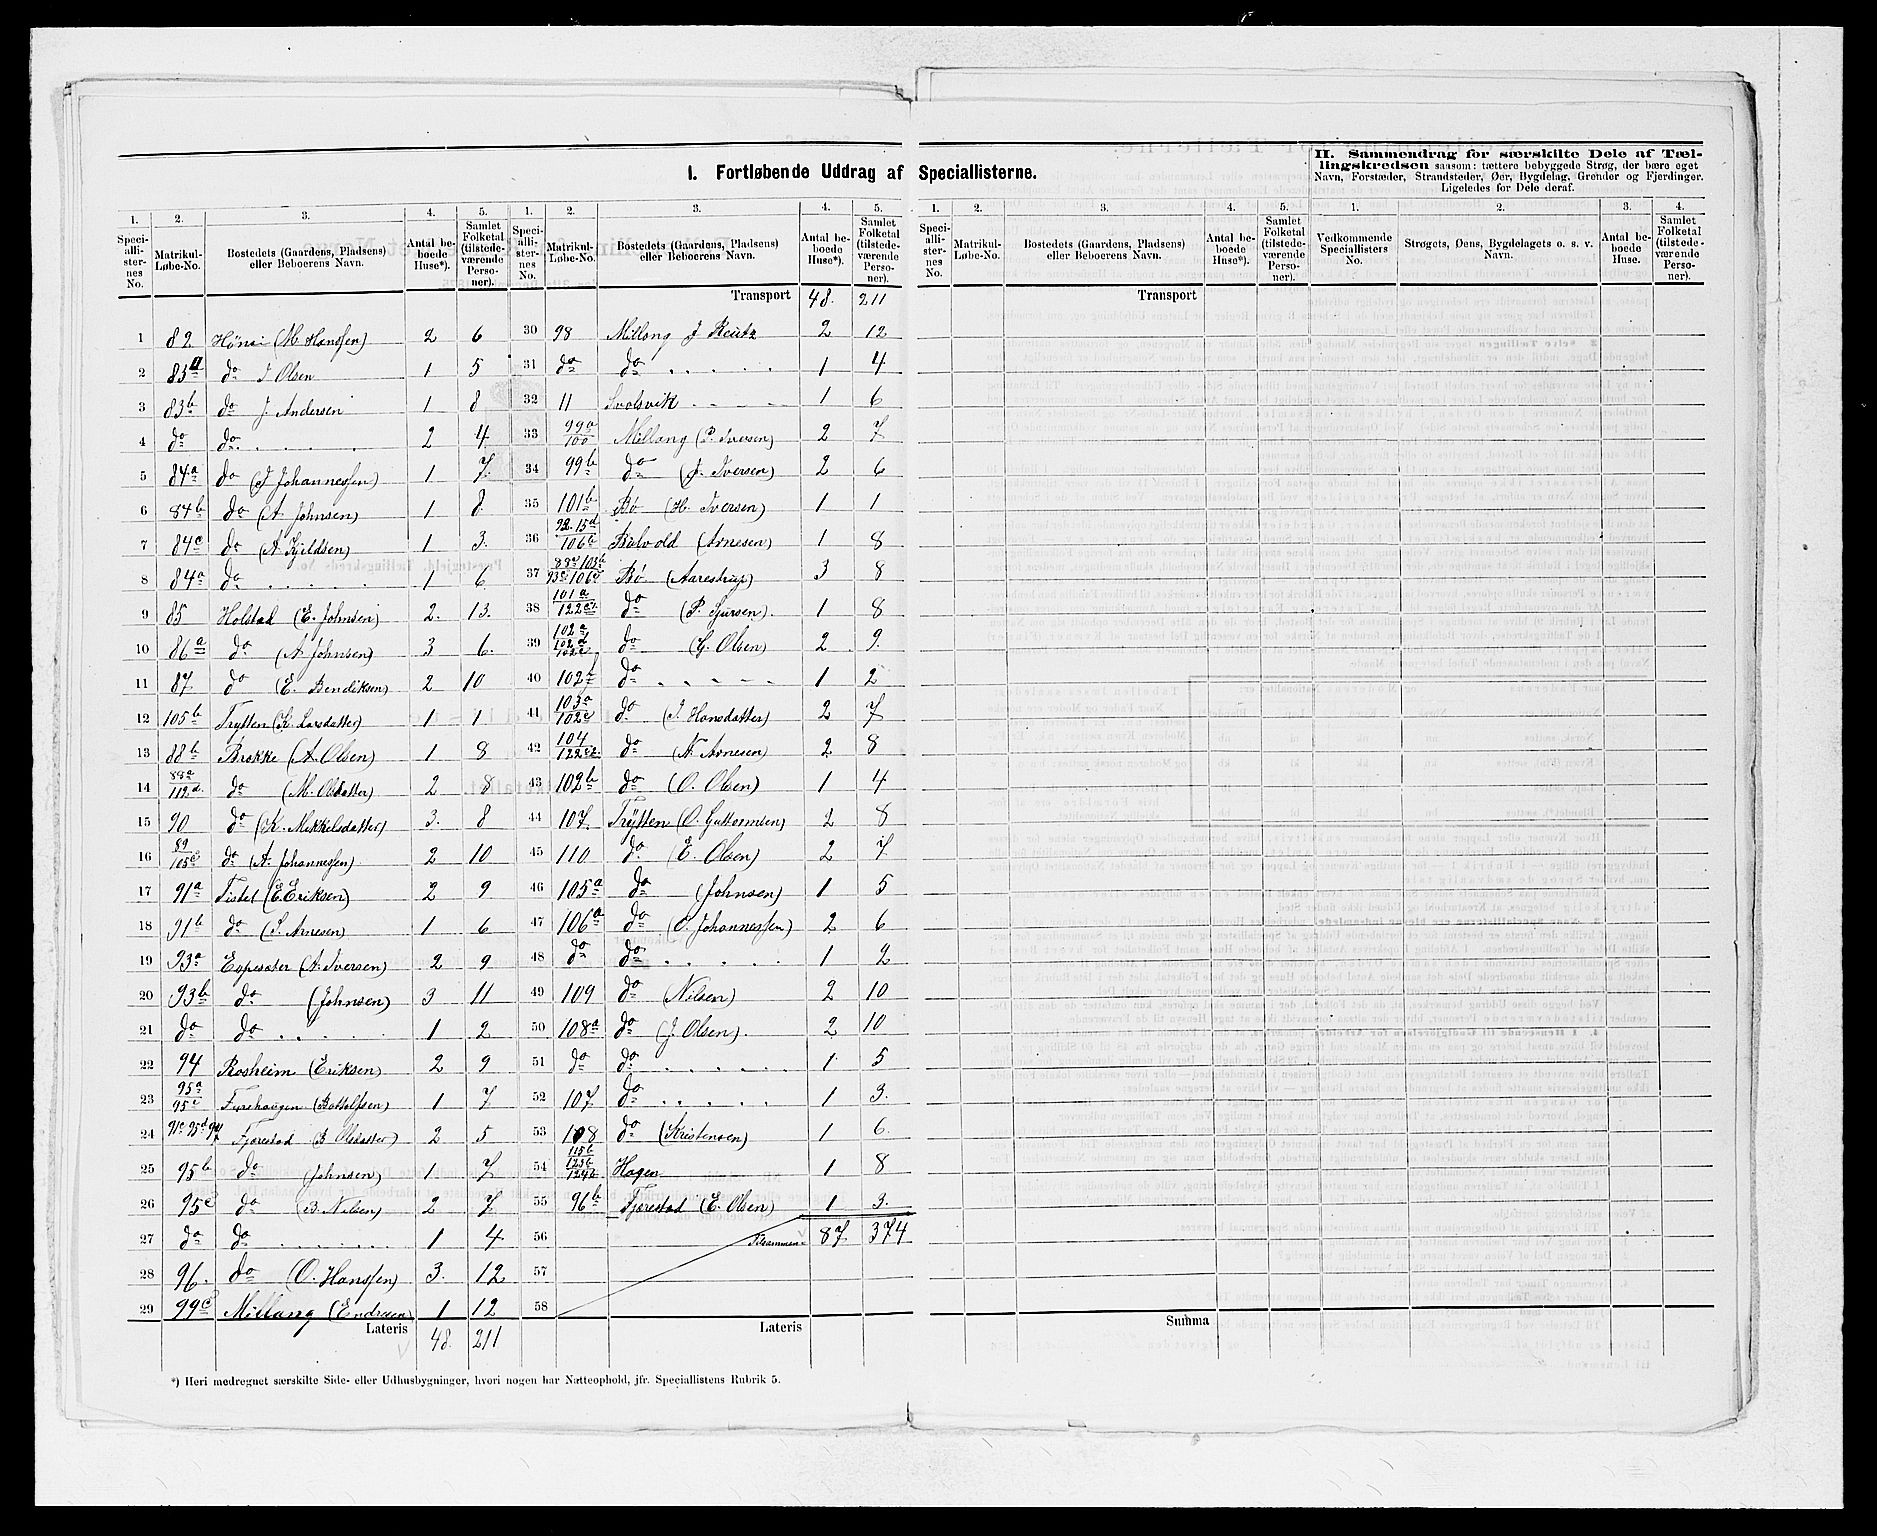 I. Fortløbende Uddrag af Speciallisterne.
II. Sammendrag for særskilte Dele af Tæl-
lingskredsen saasom: tættere bebyggede Strøg, der bære eget
Navn, Forstæder, Strandsteder, Øer, Bygdelag, Grender og Fjerdinger.
Ligeledes for Dele deraf.
1. 2. 3. 4. 5. 1. 2. 3. 4. 5. 1. 2. 3. 4. 5. 1. 2. 3. 4.
Speci-alli-ster-nes No. Matrikul-Løbe-No. Bostedets (Gaardens, Pladsens) eller Beboerens Navn. Antal be-boede Huse*). Samlet Folketal (tilstede-værende Perso-ner).
Speci-alli-ster-nes No. Matrikul-Løbe-No. Bostedets (Gaardens, Pladsens) eller Beboerens Navn. Antal be-boede Huse*). Samlet Folketal (tilstede-værende Perso-ner).
Speci-alli-ster-nes No. Matrikul-Løbe-No. Bostedets (Gaardens, Pladsens) eller Beboerens Navn. Antal be-boede Huse*). Samlet Folketal (tilstede-værende Perso-ner).
Vedkommende Speciallisters No. Strøgets, Øens, Bygdelagets o. s. v. Navn. Antal be-boede Huse. Samlet Folketal (tilstede-værende Perso-ner).
1 82 (M. Hanssen) 2 6
2 83a do J Olsen 1 5
3 83b do J. Andersen 1 8
4 do do 2 4
5 84a do (J Johannessen) 1 7
6 84b do (A. Johnsen) 1 8
7 84c do (A Kjeldsen) 1 3
8 84a do 1 6
9 85 Holstad (E. Johnsen) 2 13
10 86a do (A. Johnsen) 3 6
11 87 do (E. Bendiksen) 2 10
12 105b Trytten (K. Larsdatter) 1 1
13 88b Brække (A. Olsen) 1 8
14 88a 112d do (M. Olsdatter) 2 8
15 90 do (K. Mikkelsdatter) 3 8
16 89 105c do (A. Johannessen) 2 10
17 91a Tistel (E. Eriksen) 2 9
18 91b do (S. Arnesen) 1 6
19 93a (A. Iversen) 2 9
20 93b do (Johnsen) 3 11
21 do do 1 2
22 94 Rosheim (Eriksen) 2 9
23 95a 95c (Bottolfsen) 1 7
24 Fjærestad (B Olsdatter) 2 5
25 95b do (Johnsen) 1 7
26 95c do (B. Nilsen) 2 7
27 do do 1 4
28 96. do (O. Hanssen) 3. 12
29 99c Millang (Endresen) 1 12
Lateris 48. 211
Transport 48. 211
30 98 Millang J Reutz 2 12
31 do do 1 4
32 11 Svolsvik 1 6
33 99a 100 Millang (P. Iversen) 2 7
34 99b do (J. Iversen) 2 6
35 101b Bø (H. Iversen) 1 1
36 92. 15d 106b (Arnesen) 1 8
37 Bø (Aarestrup) 3 8
38 101a do (P. Sjursen) 1 8
39 102a 102d do (G. Olsen) 2 9
40 102f do 1 2
41 103a 102c do (J. Hansdatter) 2 7
42 104 do (N. Arnesen) 2 8
43 102b do (O. Olsen) 1 4
44 107 Trytten (O. Guttormsen) 2 8
45 110 do (E. Olsen) 2 7
46 105a do (Johnsen) 1 5
47 106a do (O. Johannessen) 2 6
48 do do 1 2
49 109 do (Nilsen) 2 10
50 108a do (J. Olsen) 2 10
51 do do 1 5
52 107 do 1 3
53 108 do (Kristensen) 1 6
54 115b 123b 124b Hagen 1 8
55 96b Fjærestad (E. Olsen) 1 3
56 Tilsammen 87 374
57
58
Lateris
Transport
Summa
*) Heri medregnet særskilte Side- eller Udhusbygninger, hvori nogen har Natteophold, jfr. Speciallistens Rubrik 5.